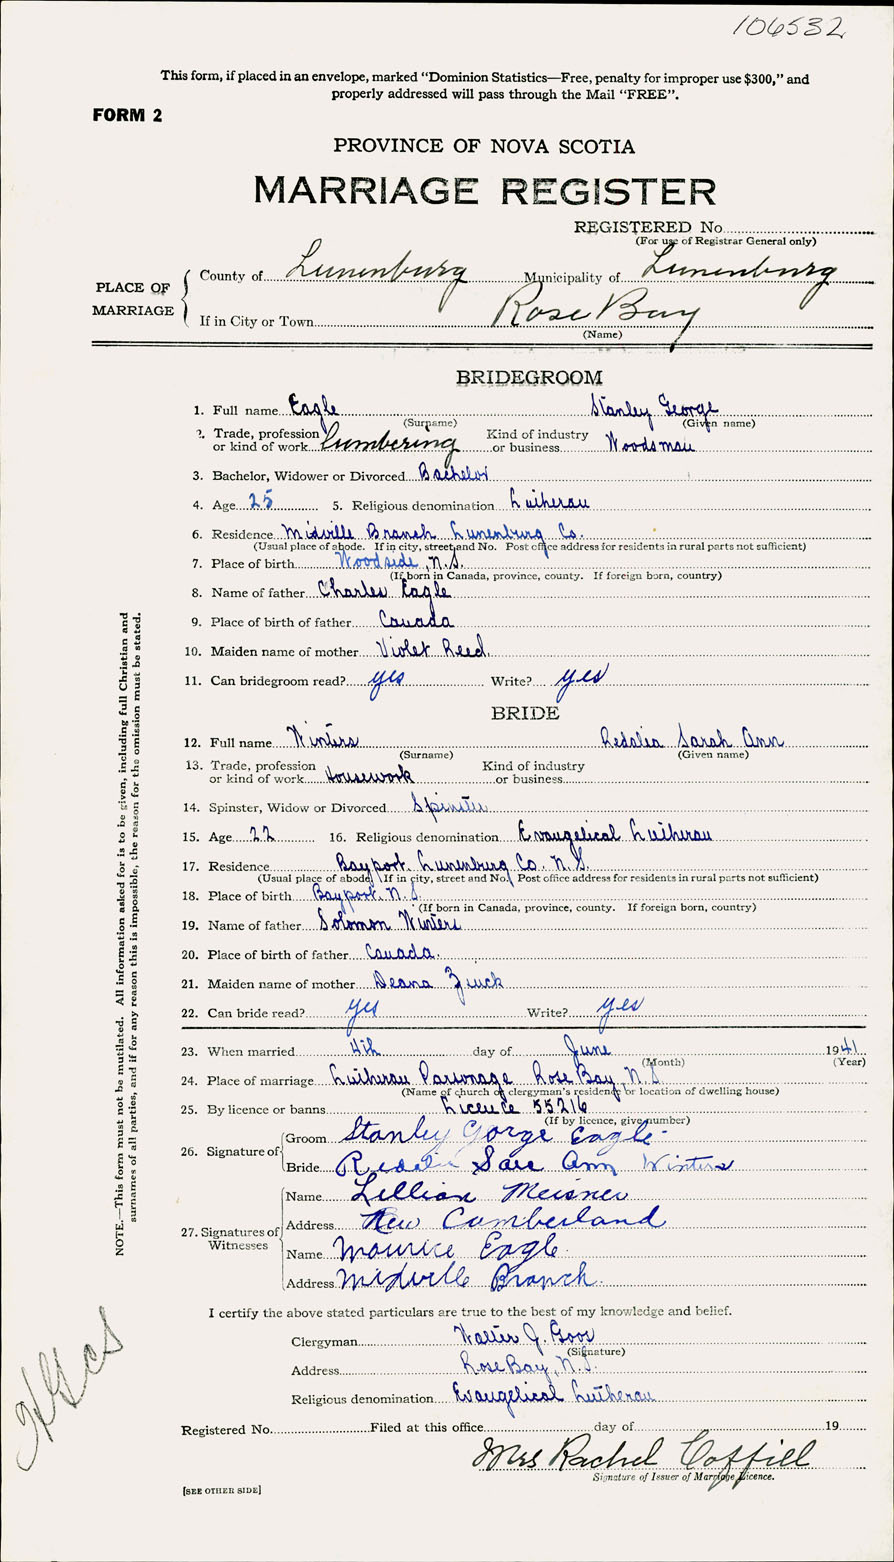 106532
This form, if placed in an envelope, marked “Dominion Statistics—Free, penalty for improper use $300,” and
properly addressed will pass through the Mail “FREE”.
FORM 2
PROVINCE OF NOVA SCOTIA
MARRIAGE REGISTER
REGISTERED No.
(For use of Registrar General only)
PLACE OF MARRIAGE
County of Lunenburg Municipality of Lunenburg
If in City or Town Rose Bay
(Name)
BRIDEGROOM
1. Full name Eagle Stanley George
(Surname) (Given name)
2. Trade, profession or kind of work Lumbering Kind of industry or business Woodsman
3. Bachelor, Widower or Divorced Bachelor
4. Age 25 5. Religious denomination Lutheran
6. Residence Midville Branch Lunenburg Co.
(Usual place of abode. If in city, street and No. Post office address for residents in rural parts not sufficient)
7. Place of birth Woodside, N.S.
(If born in Canada, province, county. If foreign born, country)
8. Name of father Charles Eagle
9. Place of birth of father Canada
10. Maiden name of mother Violet Reed.
11. Can bridegroom read? yes Write? yes
BRIDE
12. Full name Winters Redalia Sarah Ann
(Surname) (Given name)
13. Trade, profession or kind of work Housework Kind of industry or business
14. Spinster, Widow or Divorced Spinster
15. Age 22 16. Religious denomination Evangelical Lutheran
17. Residence Bayport. Lunenburg Co. N.S.
(Usual place of abode. If in city, street and No. Post office address for residents in rural parts not sufficient)
18. Place of birth Bayport. N.S.
(If born in Canada, province, county. If foreign born, country)
19. Name of father Solomon Winters
20. Place of birth of father Canada.
21. Maiden name of mother Deana Zinck
22. Can bride read? yes Write? yes
23. When married 4th day of June 1941
(Month) (Year)
24. Place of marriage Lutheran Parsonage Rose Bay, N.S.
(Name of church or clergyman's residence or location of dwelling house)
25. By licence or banns Licence 55216
(If by licence, give number)
26. Signature of
Groom Stanley Gorge Eagle
Bride Redalia Sare Ann Winters
27. Signatures of Witnesses
Name Lillian Meisner
Address New Cumberland
Name Maurice Eagle
Address Midville Branch.
I certify the above stated particulars are true to the best of my knowledge and belief.
Clergyman Walter J. Goos
(Signature)
Address Rose Bay, N.S.
Religious denomination Evangelical Lutheran
Registered No. Filed at this office day of 19
Mrs Rachel Coffill
Signature of Issuer of Marriage Licence.
[SEE OTHER SIDE]
NOTE.—This form must not be mutilated. All information asked for is to be given, including full Christian and
surnames of all parties, and if for any reason this is impossible, the reason for the omission must be stated.